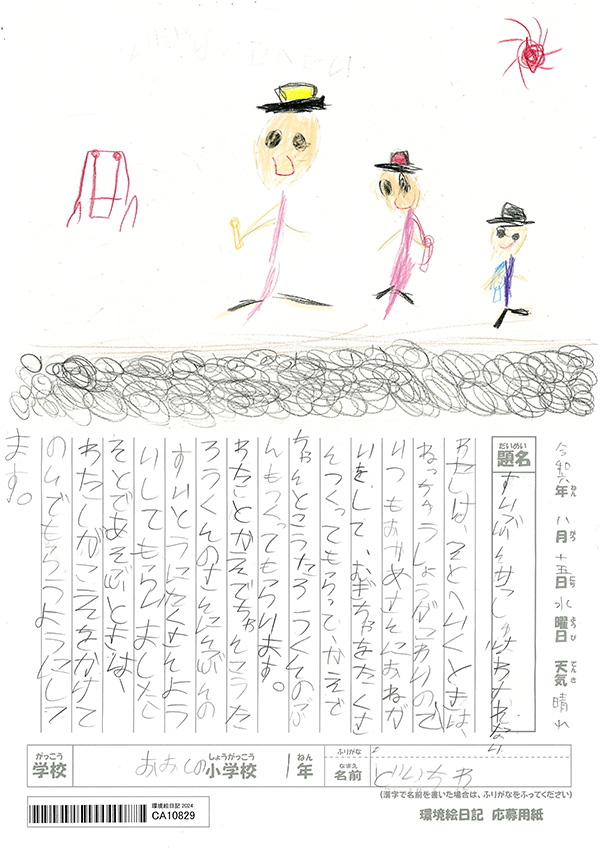 令和六年 八月 十五日 水曜日 天気 晴れ
ねん がつ にち ようび てんき
だいめい
題名 すいぶんせっしゅはわすれない
わたしは、そとへいくときは、
ねっちゅうしょうがこわいので
いつもおかあさんにおねが
いをして、むぎちゃをたくさ
んつくってもらって、かえで
ちゃんとこうたろうくんのぶ
んもつくってもらいます。
わたしとかえでちゃんとこうた
ろうくんのすいとうにぶんの
すいとうにたくさんよう
いしてもらいました。
そとであそぶときは、
わたしがこえをかけて
のんでもらうようにしてい
ます。
がっこう しょうがっこう ねん ふりがな
学校 おおしの 小学校 1年 なまえ 名前
(漢字で名前を書いた場合は、ふりがなをふってください)
環境絵日記 2024
CA10829
環境絵日記 応募用紙